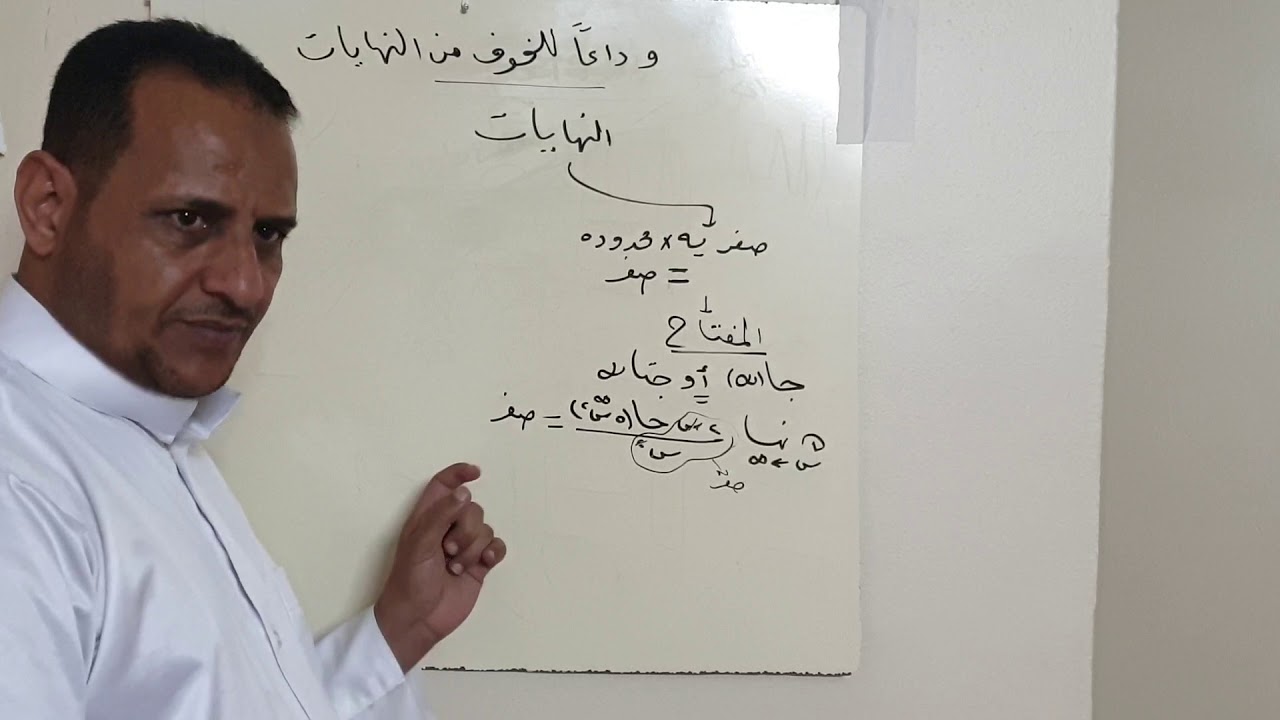 وداعاً للخوف من النهايات
النهايات
صفريه × محدوده
= صفر
المفتاح
جا(∞) أو جتا∞
نهــا جا = صفر
س ← ∞
س²
صفر